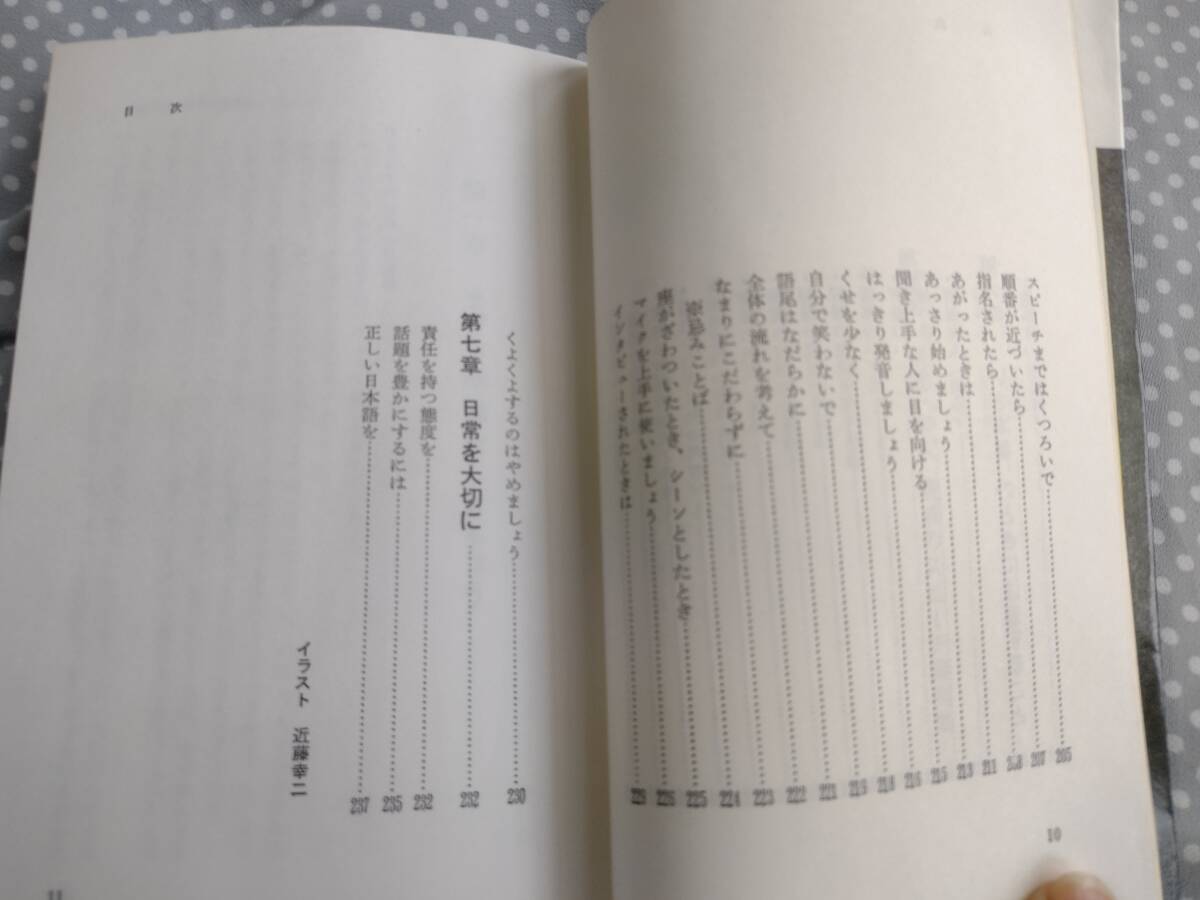 スピーチまではくつろいで……205
順番が近づいたら……207
指名されたら……208
あがったときは……211
あっさり始めましょう……213
聞き上手な人に目を向ける……215
はっきり発音しましょう……216
くせを少なく……218
自分で笑わないで……219
語尾はなだらかに……221
全体の流れを考えて……222
なまりにこだわらずに……223
※忌みことば……224
座がざわついたとき、シーンとしたとき……225
マイクを上手に使いましょう……226
インタビューされたときは……228
10
目次
くよくよするのはやめましょう……230
第七章 日常を大切に……232
責任を持つ態度を……232
話題を豊かにするには……235
正しい日本語を……237
イラスト 近藤幸二
11